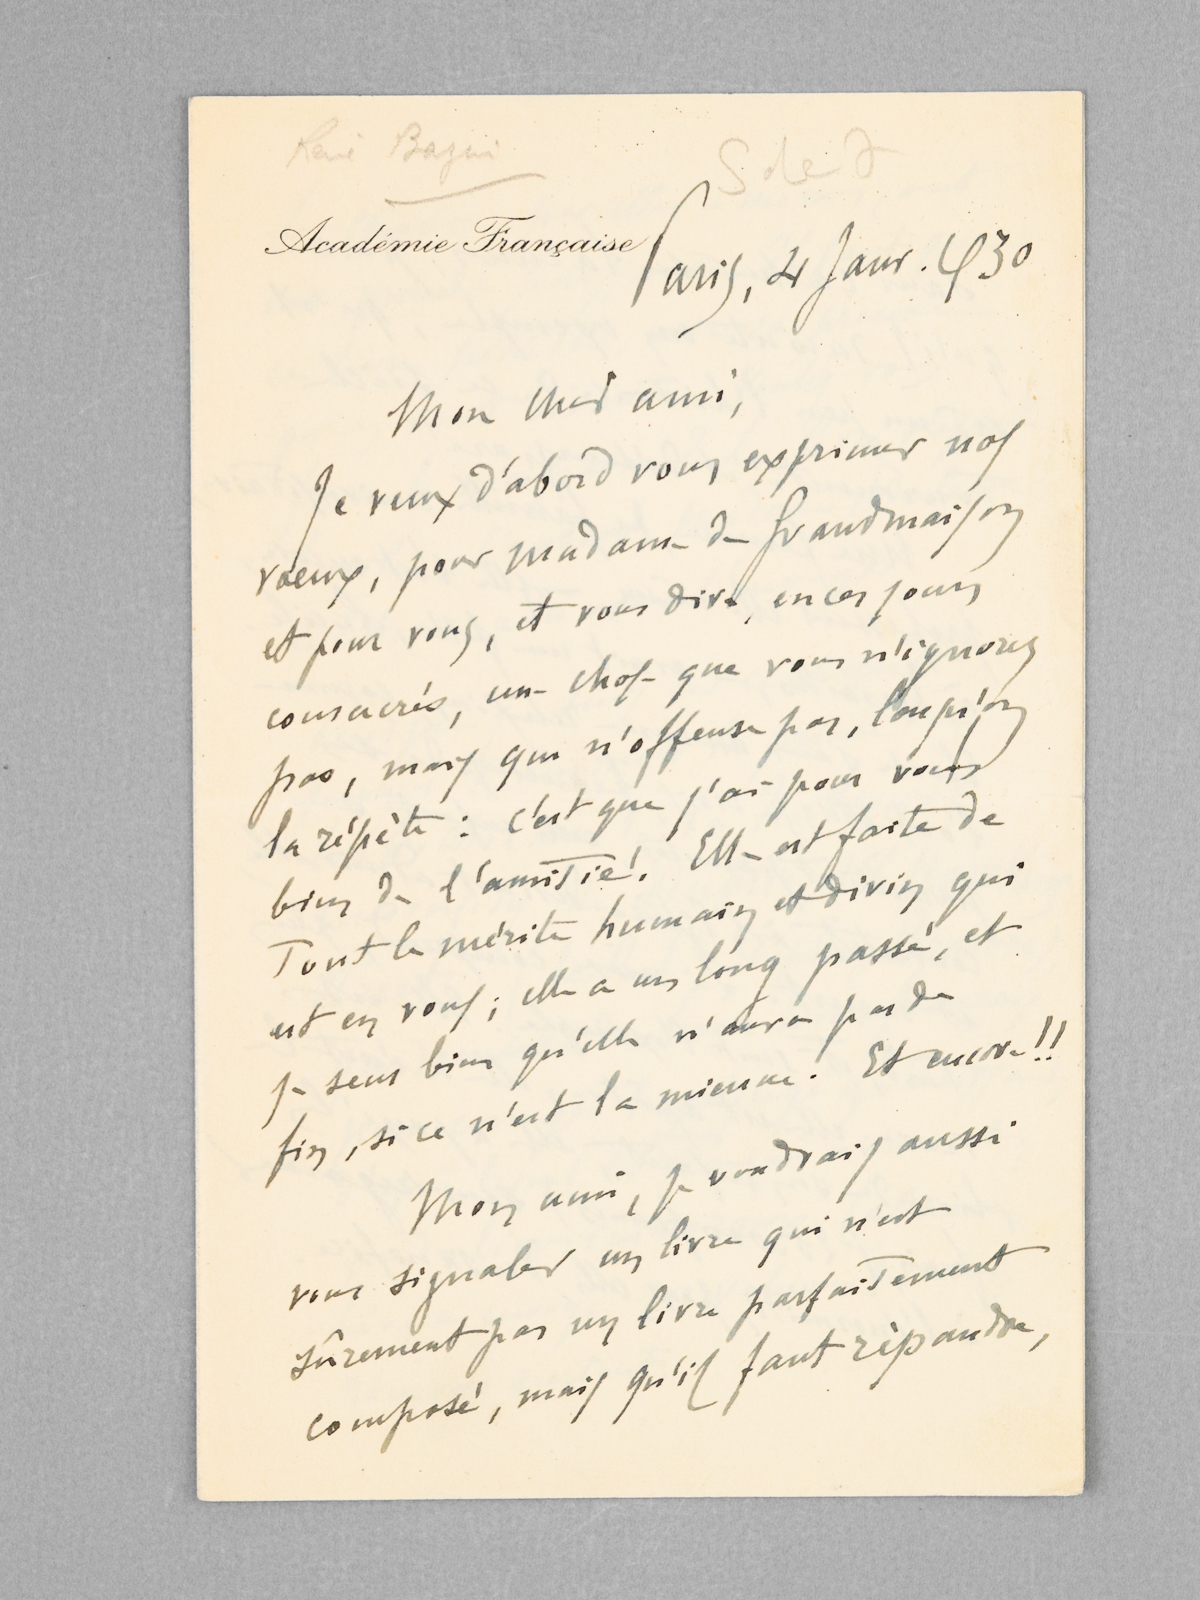 René Bazin
Académie Française
Paris, 4 Janv. 1930
Mon cher ami,
Je veux d'abord vous exprimer nos
vœux, pour madame de Grandmaison
et pour vous, et vous dire, en ces jours
consacrés, une chose que vous n'ignorez
pas, mais qui n'offense pas, lorsqu'on
la répète : c'est que j'ai pour vous
bien de l'amitié. Elle est faite de
tout le mérite humain et divin qui
est en vous ; elle a un long passé, et
je sens bien qu'elle n'aura pas de
fin, si ce n'est la mienne. Et encore !!
Mon ami, je voudrais aussi
vous signaler un livre qui n'est
sûrement pas un livre parfaitement
composé, mais qu'il faut répandre,